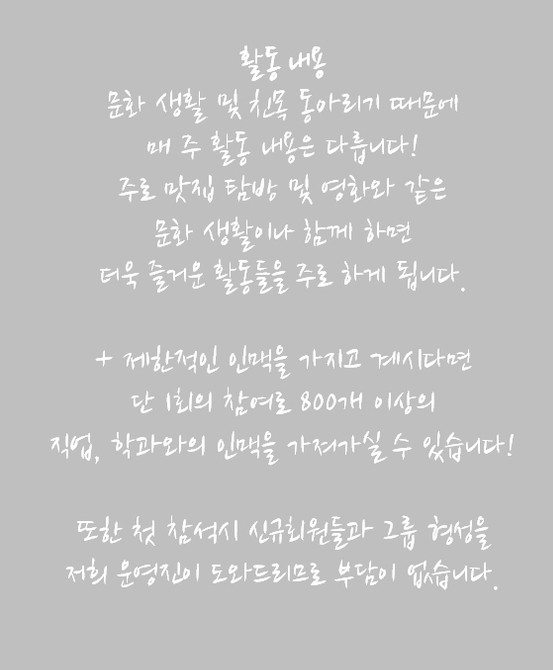 활동 내용
문화 생활 및 친목 동아리기 때문에
매 주 활동 내용은 다릅니다!
주로 맛집 탐방 및 영화와 같은
문화 생활이나 함께 하면
더욱 즐거운 활동들을 주로 하게 됩니다.
+ 제한적인 인맥을 가지고 계시다면
단 1회의 참여로 800개 이상의
직업, 학과와의 인맥을 가져가실 수 있습니다!
또한 첫 참석시 신규회원들과 그룹 형성을
저희 운영진이 도와드리므로 부담이 없습니다.